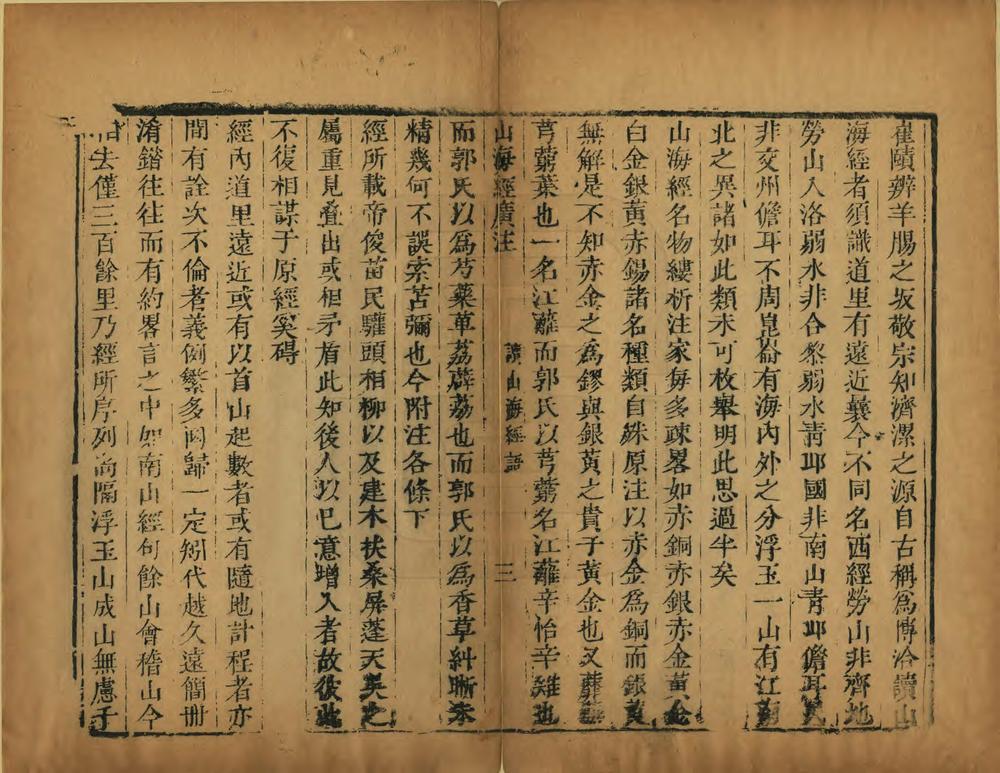 崔賾辨羊腸之坂敬宗知濟漯之源自古稱爲博洽讀山
海經者須識道里有遠近曩今不同名西經勞山非齊地
勞山入洛弱水非合黎弱水靑丘國非南山靑丘儋耳
非交州儋耳不周崑崙有海內外之分浮玉一山有江南
北之異諸如此類未可枚舉明此思過半矣
山海經名物縷析注家每多疎畧如赤銅赤銀赤金黃金
白金銀黃赤錫諸名種類自殊原注以赤金爲銅而銀黃
無解是不知赤金之爲鏐與銀黃之貴于黃金也又蘼蕪
芎藭葉也一名江蘺而郭氏以芎藭名江蘺辛怡辛雉也
山海經廣注
讀山海經語
三
而郭氏以爲芍藥草荔薜荔也而郭氏以爲香草糾晰未
精幾何不誤索苫彌也今附注各條下
經所載帝俊苗民驩頭相柳以及建木扶桑屏蓬天吳之
屬重見疊出或相矛盾此知後人以已意增入者故彼此
不復相謀于原經奚碍
經內道里遠近或有以首山起數者或有隨地計程者亦
間有詮次不倫者義例繁多罔歸一定矧代越久遠簡冊
淆錯往往而有約畧言之中如南山經句餘山會稽山今
去僅三百餘里乃經所序列尚隔浮玉山成山無慮千